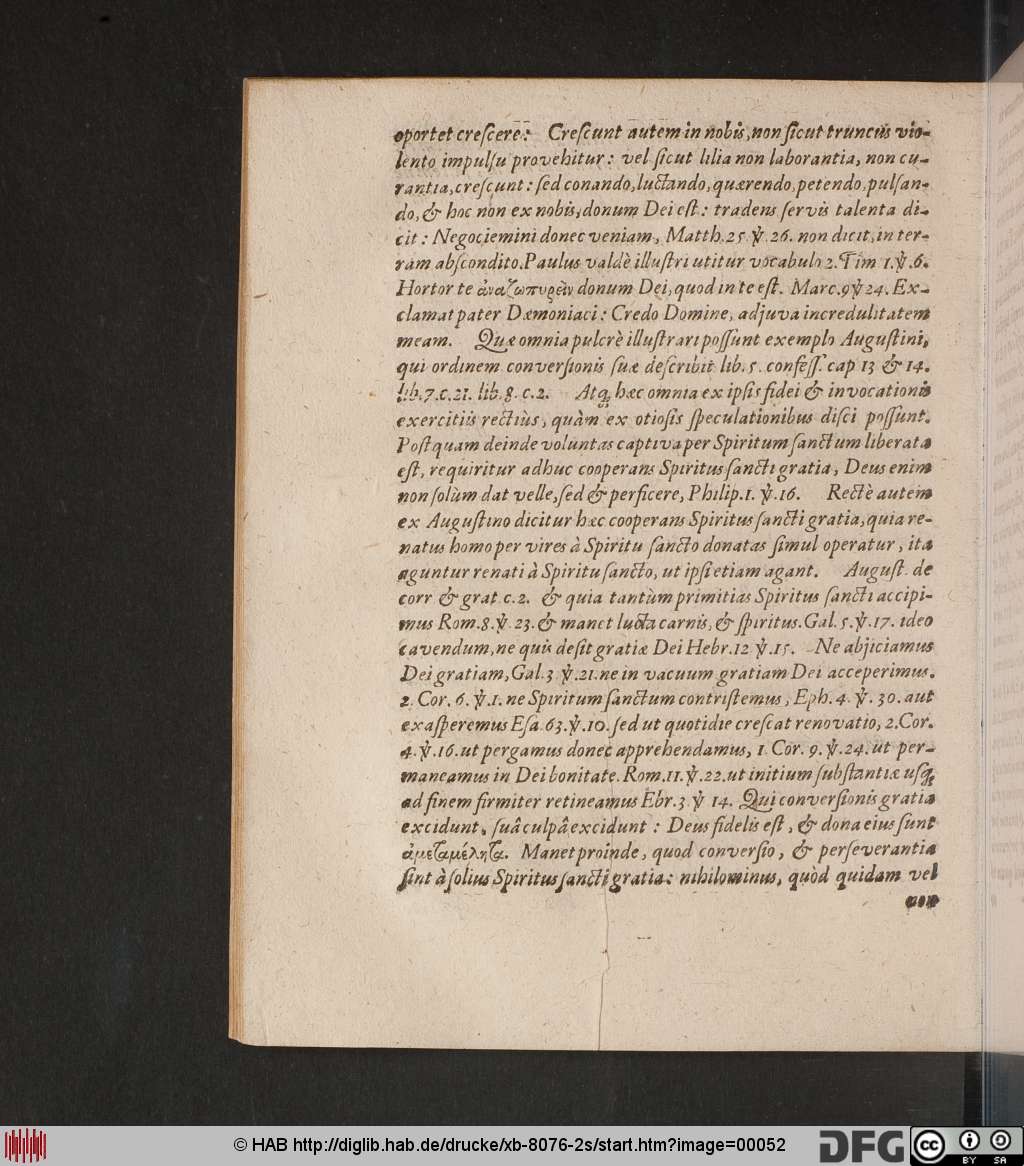 oportet crescere: Crescunt autem in nobis, non sicut truncus vio-
lento impulsu provehitur: vel sicut lilia non laborantia, non cu-
rantia, crescunt: sed conando, luctando, quærendo, petendo, pulsan-
do, & hoc non ex nobis, donum Dei est: tradens servis talenta di-
cit: Negociemini donec veniam, Matth. 25. ℣. 26. non dicit, in ter-
ram abscondito. Paulus valdè illustri utitur vocabulo 2. Tim 1. ℣. 6.
Hortor te ἀναζωπυρεῖν donum Dei, quod in te est. Marc. 9 ℣ 24. Ex-
clamat pater Dæmoniaci: Credo Domine, adjuva incredulitatem
meam. Quæ omnia pulcrè illustrari possunt exemplo Augustini,
qui ordinem conversionis suæ describit lib. 5. confess. cap 13 & 14.
lib. 7. c. 21. lib. 8. c. 2. Atq; hæc omnia ex ipsis fidei & invocationis
exercitiis rectiùs, quàm ex otiosis speculationibus disci possunt.
Postquam deinde voluntas captiva per Spiritum sanctum liberata
est, requiritur adhuc cooperans Spiritus sancti gratia, Deus enim
non solùm dat velle, sed & perficere, Philip. 1. ℣. 16. Rectè autem
ex Augustino dicitur hæc cooperans Spiritus sancti gratia, quia re-
natus homo per vires à Spiritu sancto donatas simul operatur, ita
aguntur renati à Spiritu sancto, ut ipsi etiam agant. August. de
corr & grat. c. 2. & quia tantùm primitias Spiritus sancti accipi-
mus Rom. 8. ℣. 23. & manet lucta carnis, & spiritus. Gal. 5. ℣. 17. ideo
cavendum, ne quis desit gratiæ Dei Hebr. 12 ℣. 15. Ne abjiciamus
Dei gratiam, Gal. 3 ℣. 21. ne in vacuum gratiam Dei acceperimus.
2. Cor. 6. ℣. 1. ne Spiritum sanctum contristemus, Eph. 4. ℣. 30. aut
exasperemus Esa. 63. ℣. 10. sed ut quotidie crescat renovatio, 2. Cor.
4. ℣. 16. ut pergamus donec apprehendamus, 1. Cor. 9. ℣. 24. ut per-
maneamus in Dei bonitate. Rom. 11. ℣. 22. ut initium substantiæ usq;
ad finem firmiter retineamus Ebr. 3 ℣ 14. Qui conversionis gratia
excidunt, suâ culpâ excidunt: Deus fidelis est, & dona eius sunt
ἀμεταμέλητα. Manet proinde, quod conversio, & perseverantia
sint à solius Spiritus sancti gratia: nihilominus, quòd quidam vel
con
© HAB http://diglib.hab.de/drucke/xb-8076-2s/start.htm?image=00052
DFG
cc BY SA